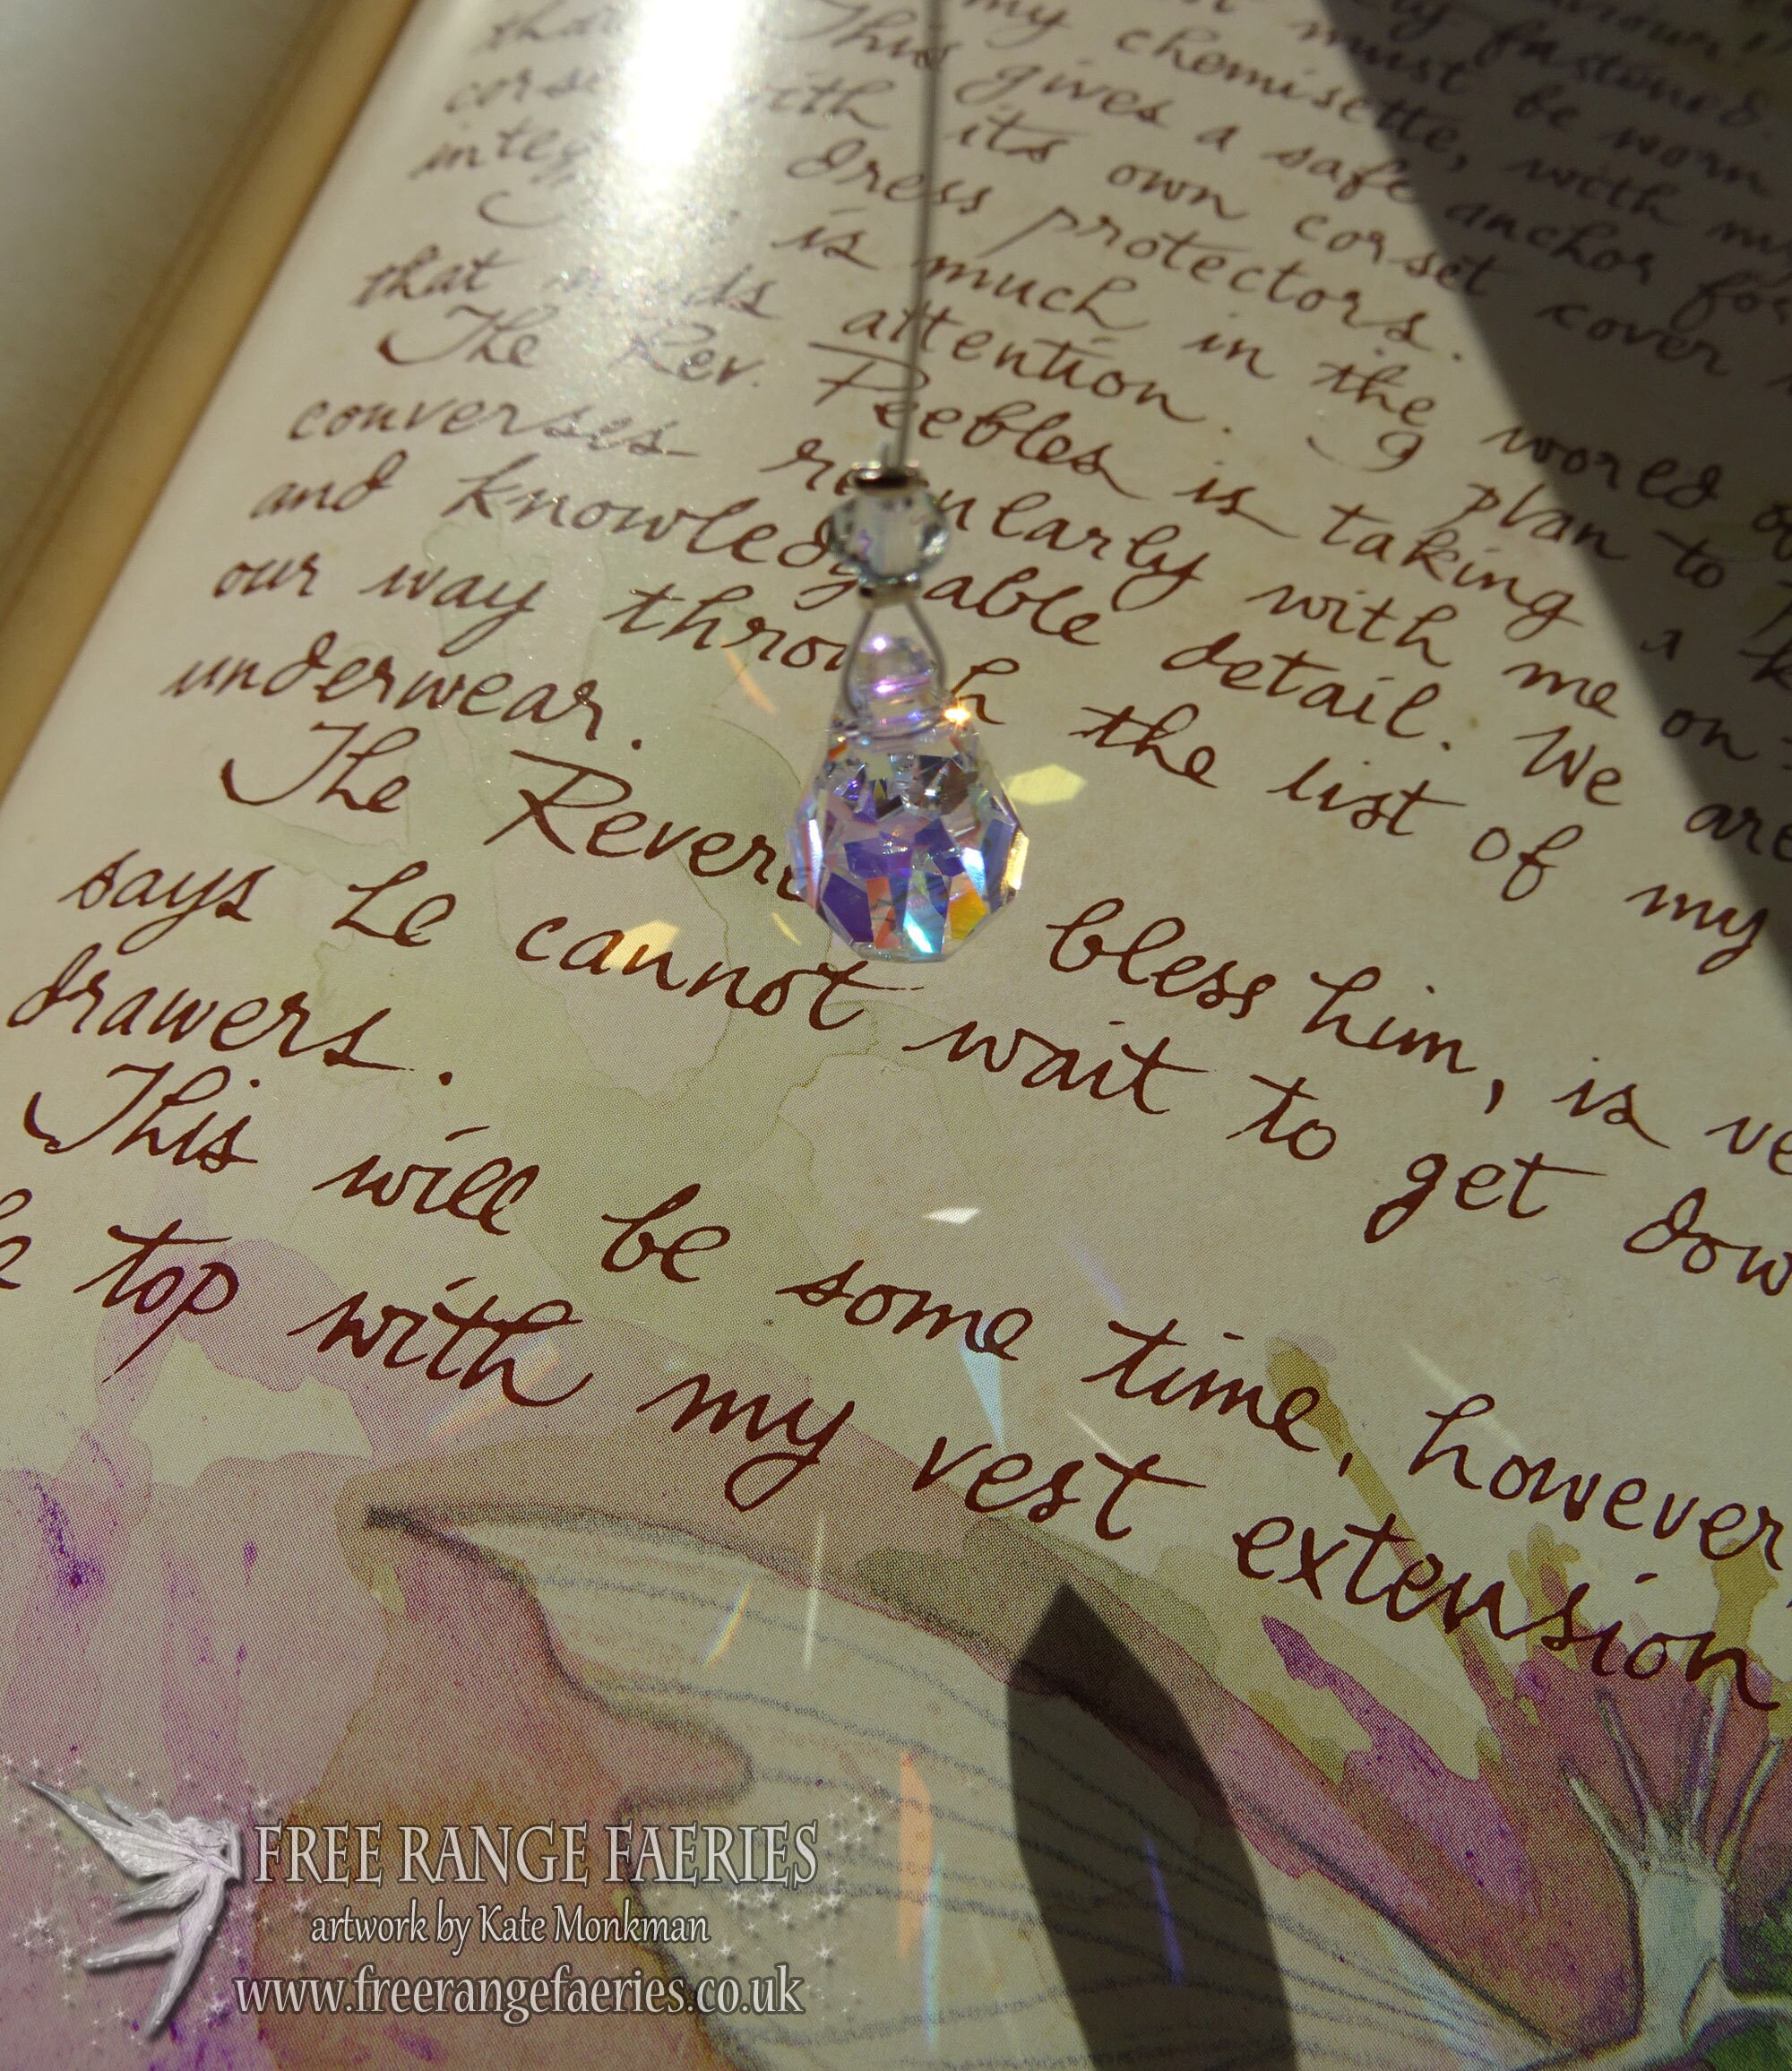 fastened.
must be worn
my chemisette, with my
This gives a safe anchor for
with its own corset cover
dress protectors.
is much in the world
that needs attention. I plan to
The Rev. Peebles is taking a
converses regularly with me on
and knowledgeable detail. We are
our way through the list of my
underwear.
The Rever bless him, is ve
says he cannot wait to get dow
drawers.
This will be some time, however,
top with my vest extension
FREE RANGE FAERIES
artwork by Kate Monkman
www.freerangefaeries.co.uk